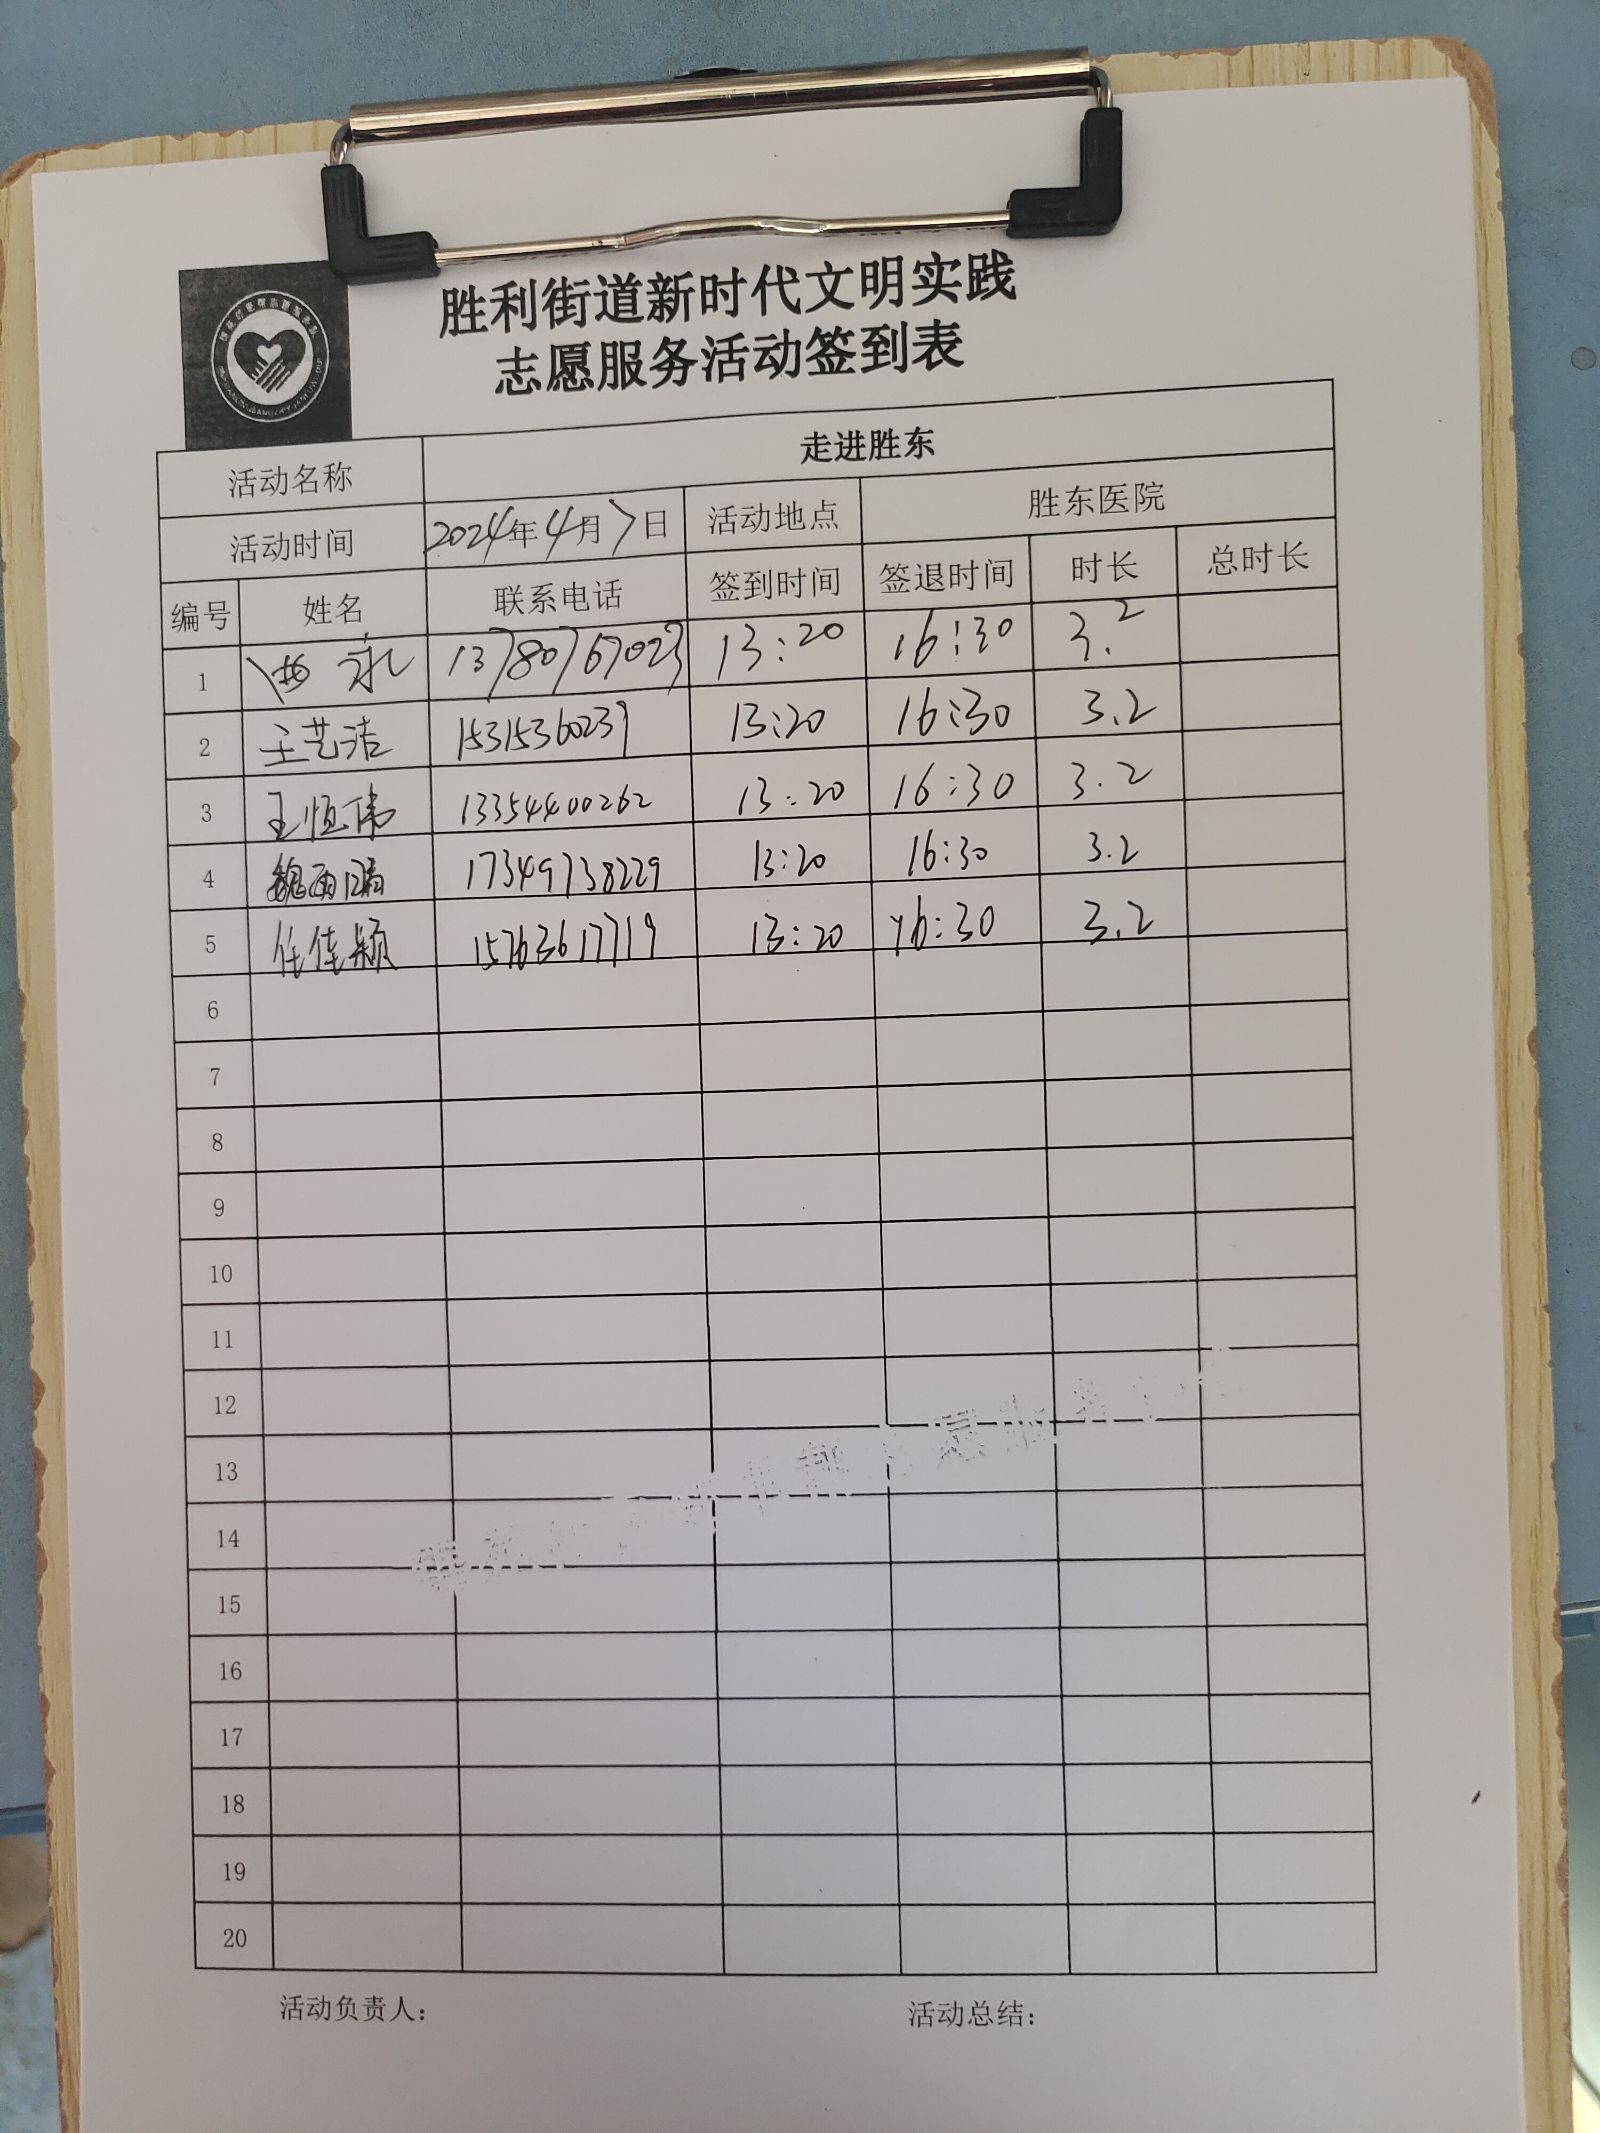 胜利街道新时代文明实践
志愿服务活动签到表
活动名称 走进胜东
活动时间 2024年4月7日 活动地点 胜东医院
编号 姓名 联系电话 签到时间 签退时间 时长 总时长
1 永 13780767023 13:20 16:30 3.2
2 王艺洁 15315360239 13:20 16:30 3.2
3 王恒伟 13354400262 13:20 16:30 3.2
4 魏雨 17349738229 13:20 16:30 3.2
5 任佳颖 15763617719 13:20 16:30 3.2
6
7
8
9
10
11
12
13
14
15
16
17
18
19
20
活动负责人： 活动总结：